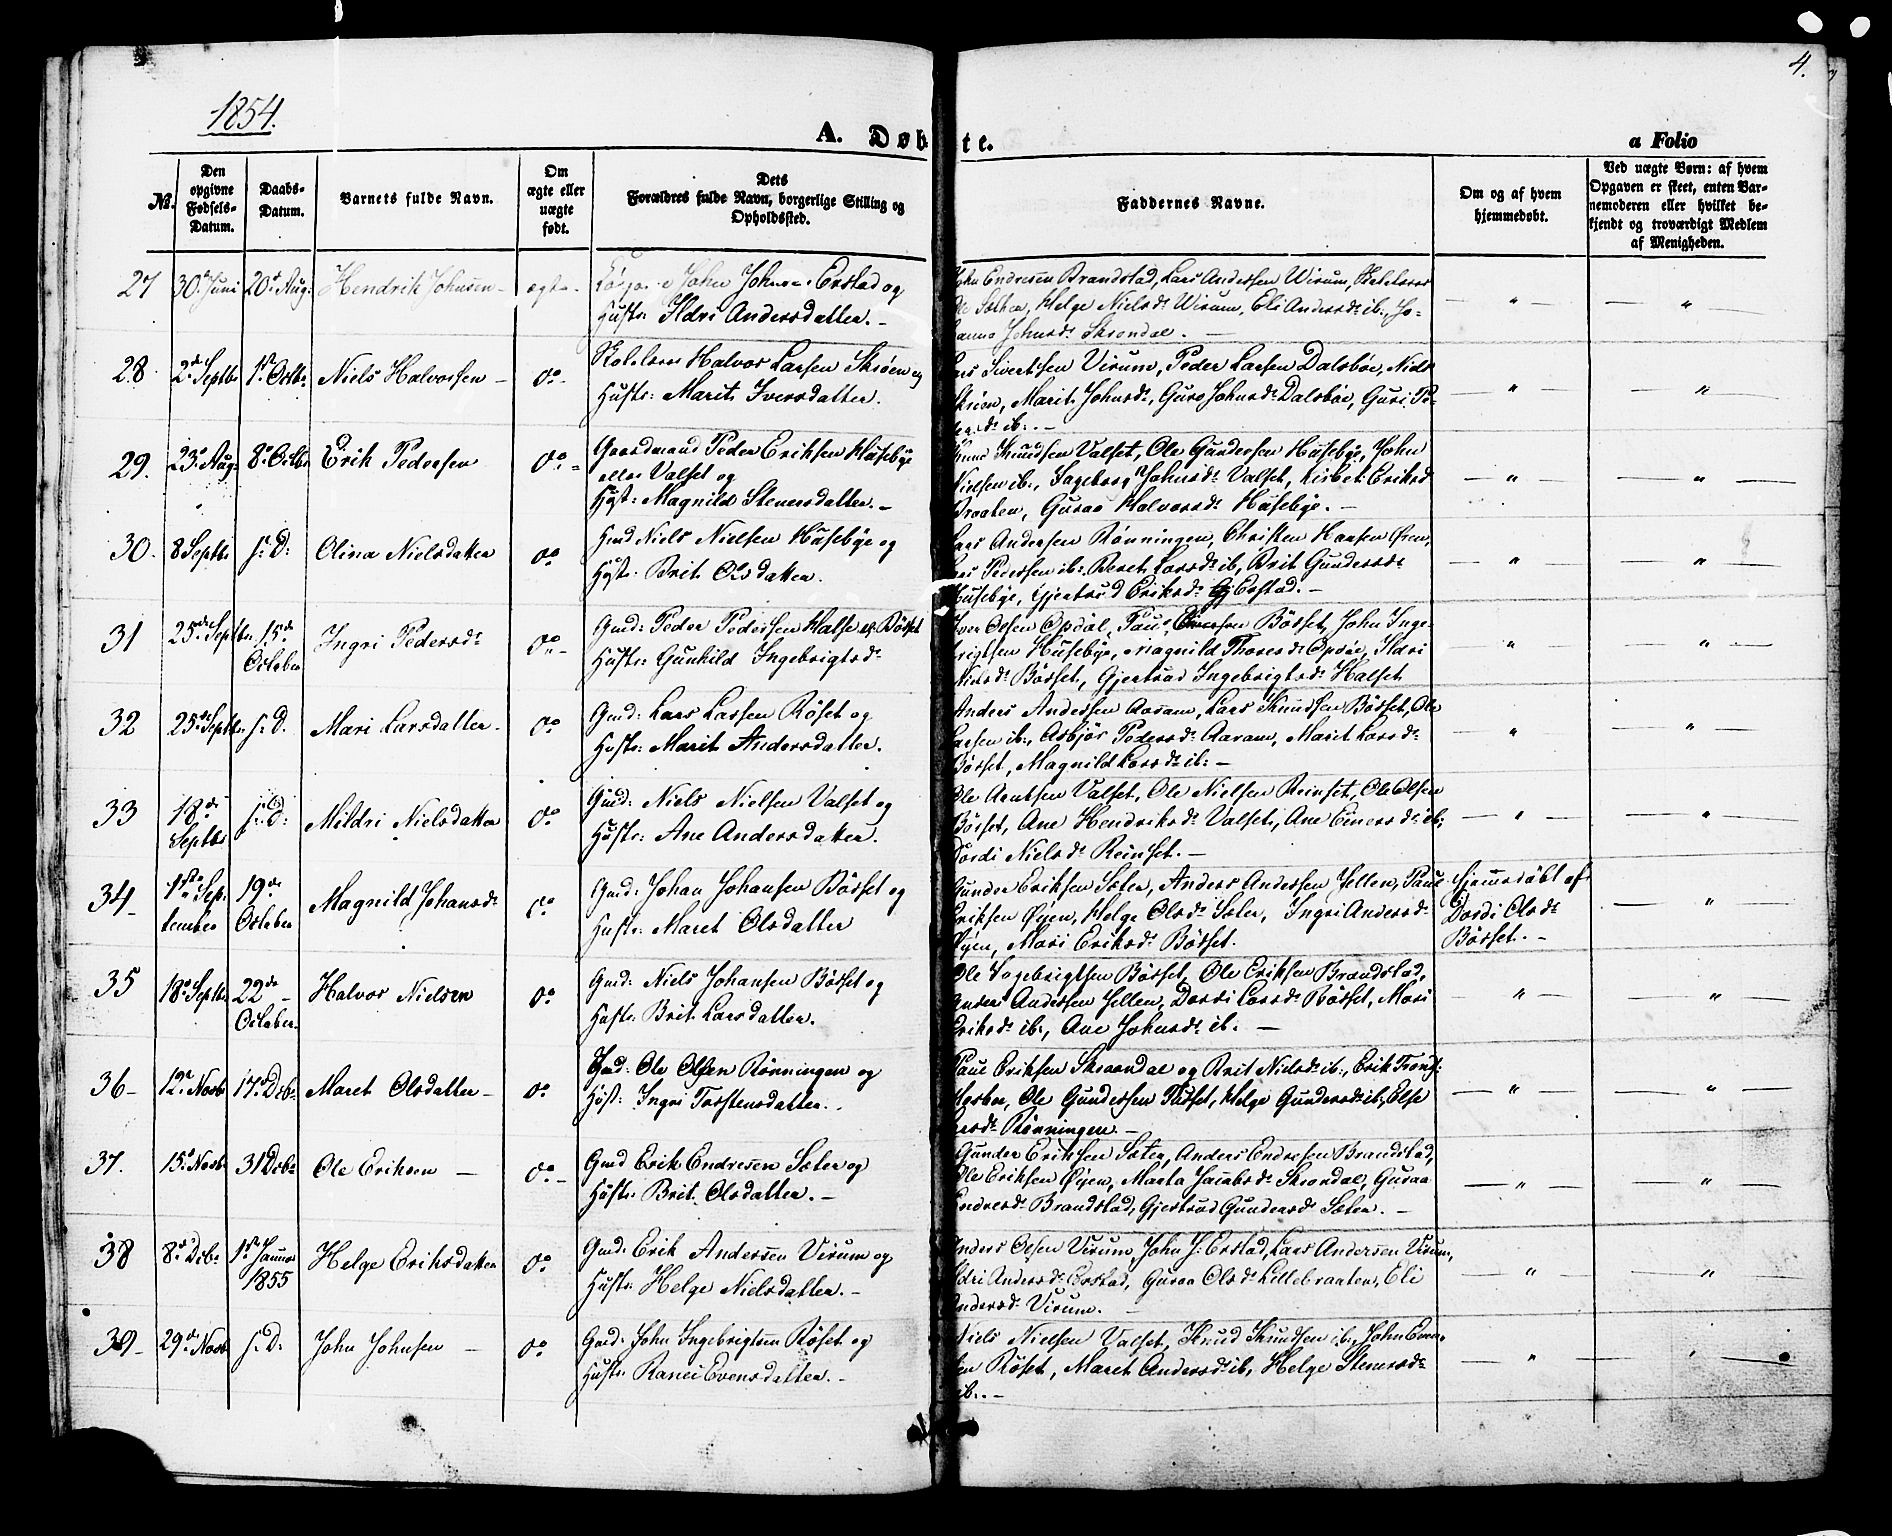 4.
1854.
A. Døbte.
a Folio
No.
Den opgivne Fødsels-Datum.
Daabs-Datum.
Barnets fulde Navn.
Om ægte eller uægte født.
Dets Forældres fulde Navn, borgerlige Stilling og Opholdssted.
Faddernes Navne.
Om og af hvem hjemmedøbt.
Ved uægte Børn: af hvem Opgaven er skeet, enten Barnemoderen eller hvilket bekjendt og troværdigt Medlem af Menigheden.
27 30te Juni 20de Aug. Hendrik Johnsen – ægte – John Johnsen Erstad og
Hustr: Ildri Andersdatter. –
John Endresen Brandstad, Lars Andersen Wirum, Skolelærer
Ole Sæther, Helge Nielsdr Wirum, Eli Andersdr ib:, Jo-
hanna Johnsdr Skrondal. – " "
28 2den Septbr 1ste Octbr. Niels Halvorsen – do – Skolelærer Halvor Larsen Skröen og
Hustr: Marit Iversdatter.
Lars Sivertsen Virum, Peder Larsen Dalsböe, Niels
Skröen, Marit Johnsdr, Guro Johnsdr Dalsböe, Guri Pe-
dersdr ib:. – " "
29. 23de Aug. 8de Octbr Erik Pedersen do – Gaardmand Peder Eriksen Husebye
eller Valset og
Hustr: Magnild Stenersdatter. –
Knud Knudsen Valset, Ole Gundersen Husebye, John
Nielsen ib:, Ingeborg Johnsdr Valset, Lisbet Eriksdr
Braaten, Guraa Halvorsdr Husebye. – " "
30. 8 Septbr s: D: Olina Nielsdatter do Gmd Niels Nielsen Husebye og
Hustr: Brit Olsdatter.
Lars Andersen Rønningen, Christen Hansen Øien,
Lars Pedersen ib:, Beret Larsdr ib, Brit Gundersdr
Husebye, Gjertrud Eriksdr Erstad. – " "
31 25de Septbr. 15de October Ingri Pedersdr do – Gmd: Peder Pedersen Halse el. Bösset
Hustr: Gunhild Ingebrigtsdr
Iver Olsen Opdöl, Paul Iversen Bösset, John Inge-
brigtsen Husebye, Magnild Thoresdr Opdöl, Ildri
Nielsdr Bösset, Gjertrud Ingebrigtsdr Halset " "
32 25de Septbr. s: D. Mari Larsdatter – do Gmd: Lars Larsen Röset og
Hustr: Marit Andersdatter.
Anders Andersen Aaram, Lars Knudsen Bösset, Ole
Larsen ib:, Asbjör Pedersdr Aaram, Maret Larsdr
Bösset, Magnild Larsdr ib: – " "
33 18de Septbr s: D: Mildri Nielsdatter do Gmd: Niels Nielsen Valset og
Hustr: Ane Andersdatter.
Ole Arntsen Valset, Ole Nielsen Reinset, Ole Olsen
Bösset, Ane Hendriksdr Valset, Ane Einersdr ib:,
Dordi Nielsdr Reinset. – " "
34 – 1ste September 19de October Magnild Johansdr do Gmd: Johan Johansen Bösset og
Hustr: Maret Olsdatter
Gunder Eriksen Sæter, Anders Andersen Jellen, Paul
Eriksen Øyen, Helge Olsdr Sæter, Ingri Andersdr
Øyen, Mari Eriksdr Bösset.
Hjemmedöbt af
Dordi Olsdr
Bösset. – "
35 18de Septbr 22de October. Halvor Nielsen do Gmd: Niels Johansen Bösset og
Hustr: Brit Larsdatter.
Ole Ingebrigtsen Bösset, Ole Eriksen Brandstad,
Anders Andersen Jellen, Dordi Larsdr Bösset, Mari
Eriksdr ib:, Ane Johnsdr ib: – " "
36 – 12te Novbr 17de Dcbr Maret Olsdatter – do Gmd: Ole Olsen Rønningen og
Hust: Ingri Torstensdatter. –
Paul Eriksen Skrondal og Brit Nielsdr ib:, Erik
Ole Gundersen Tusset, Helge Gundersdr ib:, Else
Larsdr Rønningen. – " "
37. 15de Novbr 31 Dcbr Ole Eriksen – do – Gmd Erik Endresen Sæter og
Hustr: Brit Olsdatter. –
Gunder Eriksen Sæter, Anders Endresen Brandstad,
Ole Eriksen Øyen, Marta Jacobsdr Skrondal, Guraa
Endresdr Brandstad, Gjertrud Gundersdr Sæter. – " "
38 8de Dcbr 1ste Januar 1855 Helge Eriksdatter do Gmd: Erik Andersen Virum og
Hustr: Helge Nielsdatter. –
Anders Olsen Virum, John J: Erstad, Lars Andersen Virum,
Ildri Andersdr Erstad, Guraa Olsdr Lillebraaten, Eli
Andersdr Virum. – " "
39 – 29de Novbr s: D: John Johnsen – do Gmd: John Ingebrigtsen Röset og
Hustr: Ranei Evensdatter. –
Niels Nielsen Valset, Knud Knudsen ib:, John Even-
sen Röset, Maret Andersdr ib, Helge Stenersdr
ib:. – " "